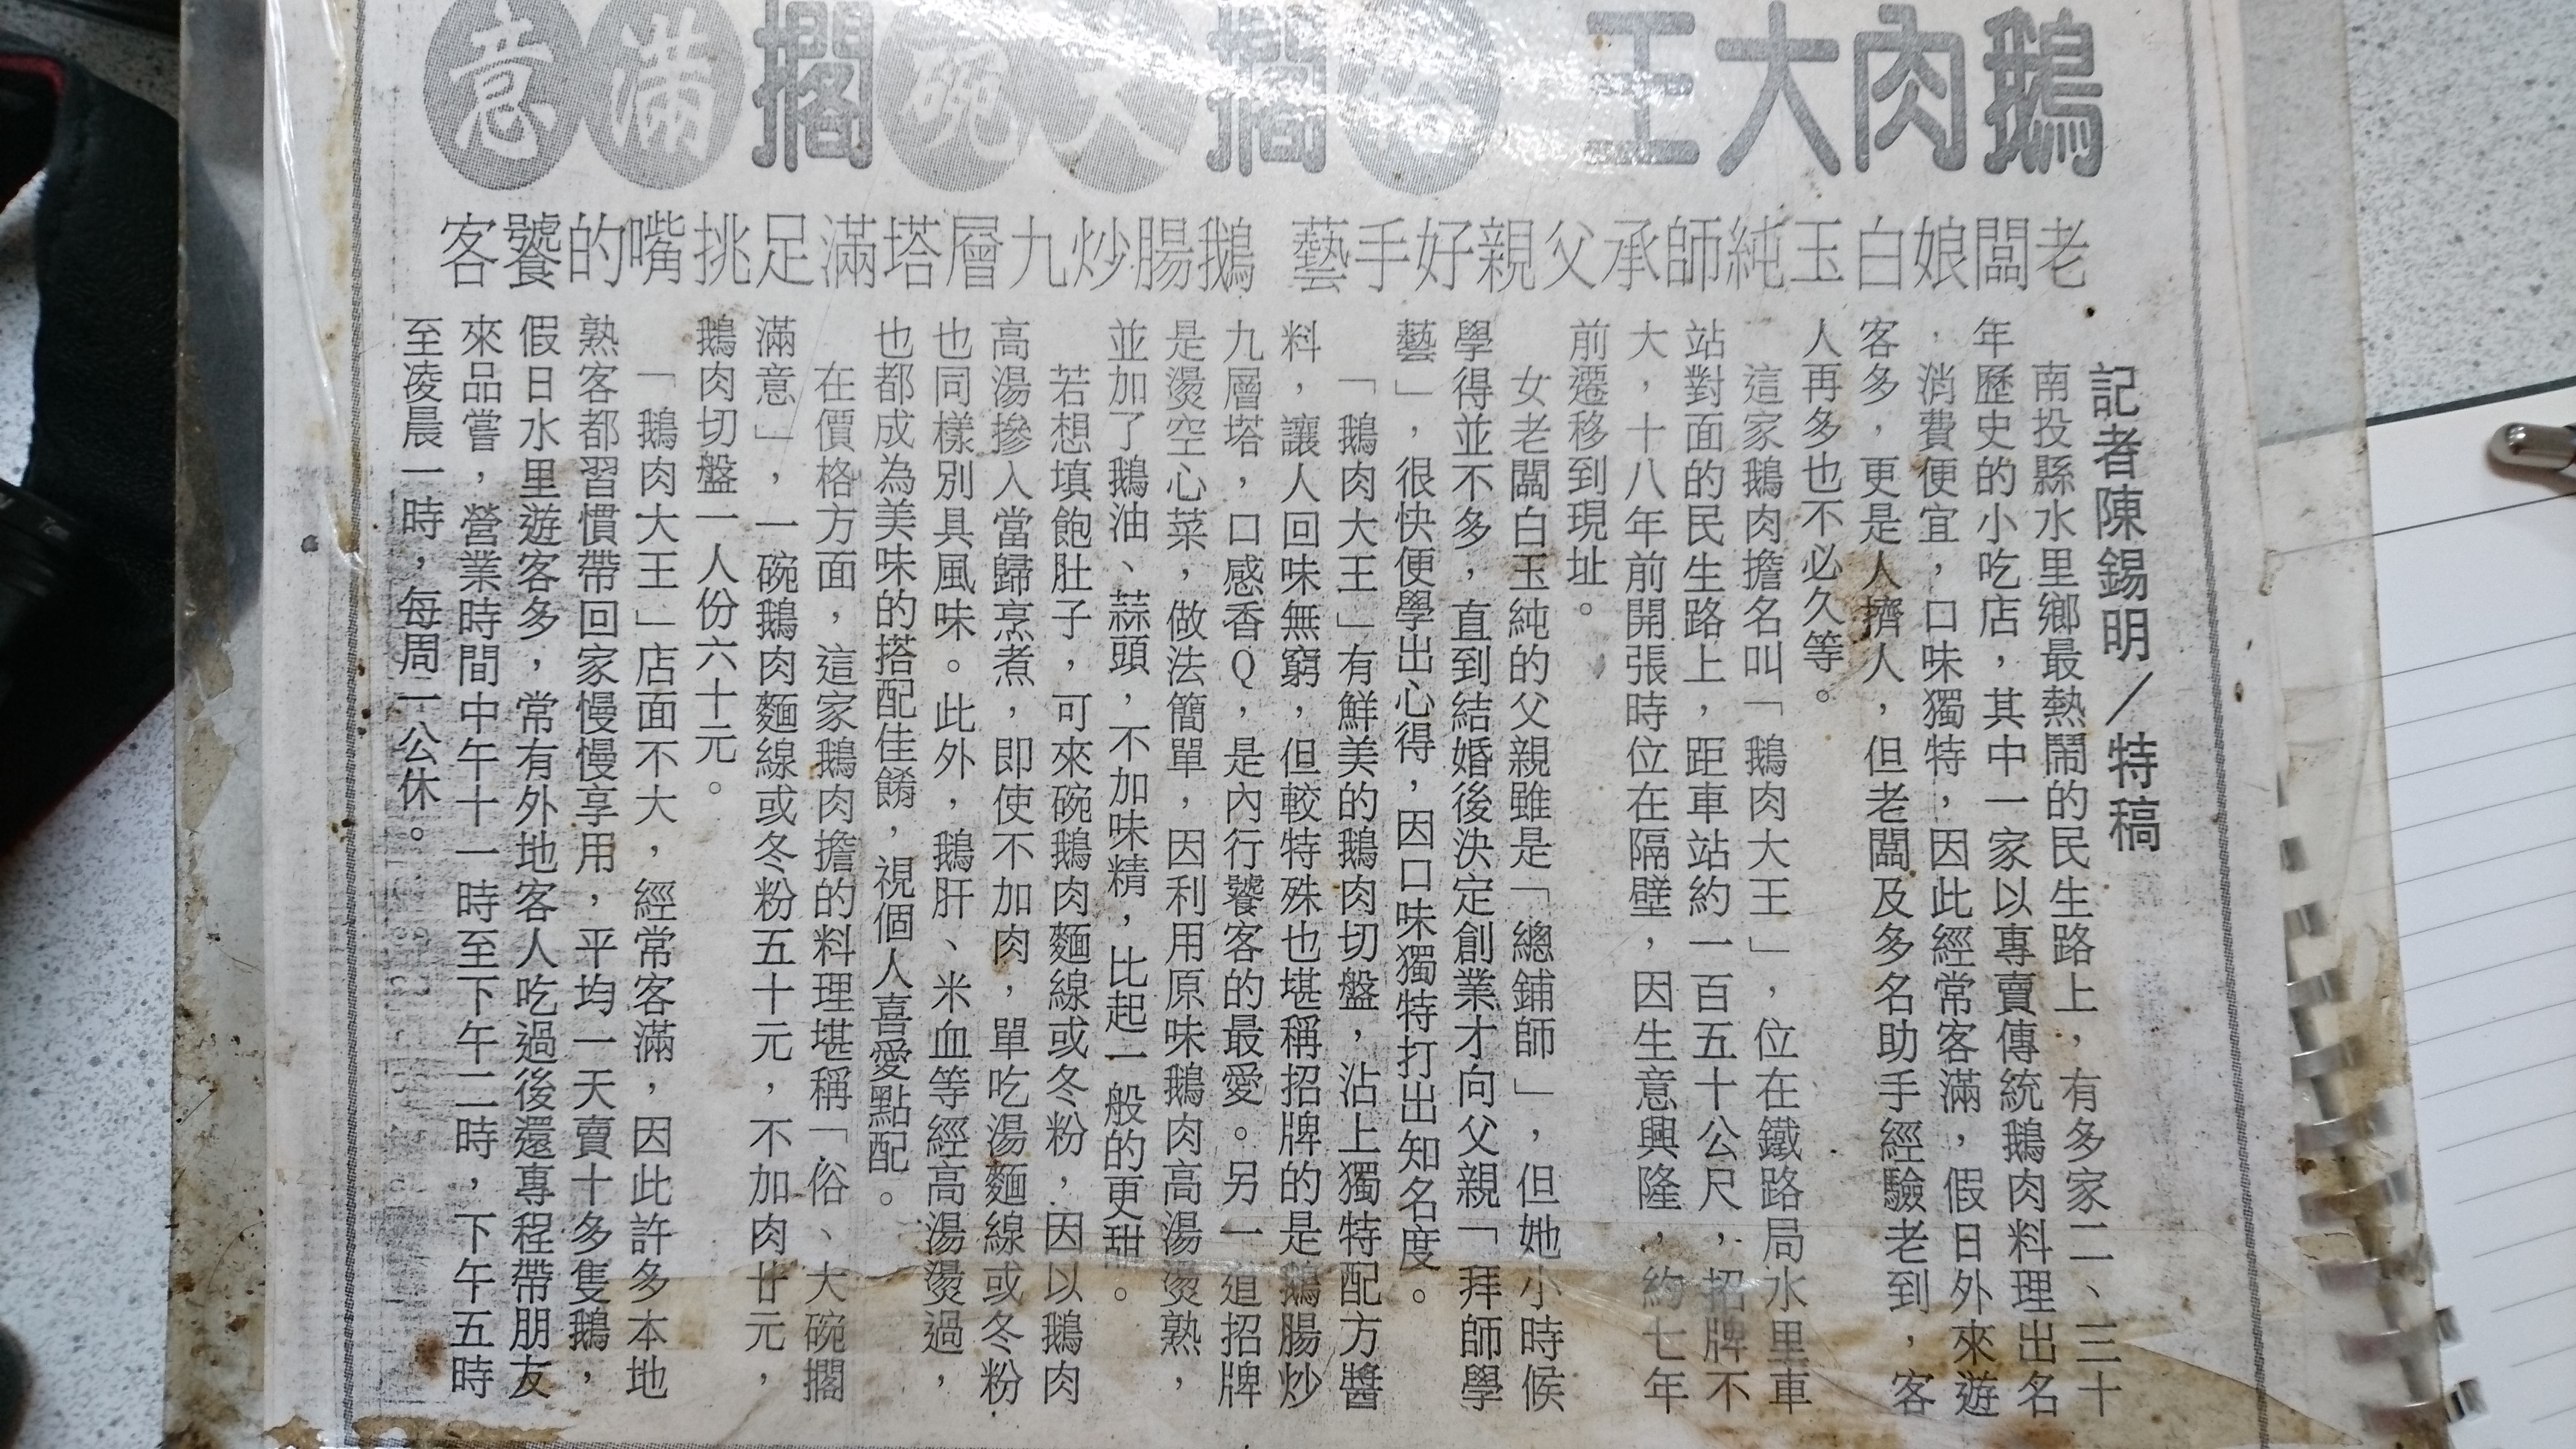 鵝肉大王 俗擱大碗擱滿意
老闆娘白玉純師承父親好手藝 鵝腸炒九層塔滿足挑嘴的饕客
記者陳錫明／特稿
南投縣水里鄉最熱鬧的民生路上，有多家二、三十
年歷史的小吃店，其中一家以專賣傳統鵝肉料理出名
，消費便宜，口味獨特，因此經常客滿，假日外來遊
客多，更是人擠人，但老闆及多名助手經驗老到，客
人再多也不必久等。
這家鵝肉擔名叫「鵝肉大王」，位在鐵路局水里車
站對面的民生路上，距車站約一百五十公尺，招牌不
大，十八年前開張時位在隔壁，因生意興隆，約七年
前遷移到現址。
女老闆白玉純的父親雖是「總鋪師」，但她小時候
學得並不多，直到結婚後決定創業才向父親「拜師學
藝」，很快便學出心得，因口味獨特打出知名度。
「鵝肉大王」有鮮美的鵝肉切盤，沾上獨特配方醬
料，讓人回味無窮，但較特殊也堪稱招牌的是鵝腸炒
九層塔，口感香Q，是內行饕客的最愛。另一道招牌
是燙空心菜，做法簡單，因利用原味鵝肉高湯燙熟，
並加了鵝油、蒜頭，不加味精，比起一般的更甜。
若想填飽肚子，可來碗鵝肉麵線或冬粉，因以鵝肉
高湯摻入當歸烹煮，即使不加肉，單吃湯麵線或冬粉
也同樣別具風味。此外，鵝肝、米血等經高湯燙過，
也都成為美味的搭配佳餚，視個人喜愛點配。
在價格方面，這家鵝肉擔的料理堪稱「俗、大碗擱
滿意」，一碗鵝肉麵線或冬粉五十元，不加肉廿元，
鵝肉切盤一人份六十元。
「鵝肉大王」店面不大，經常客滿，因此許多本地
熟客都習慣帶回家慢慢享用，平均一天賣十多隻鵝，
假日水里遊客多，常有外地客人吃過後還專程帶朋友
來品嘗，營業時間中午十一時至下午二時，下午五時
至凌晨一時，每周二公休。